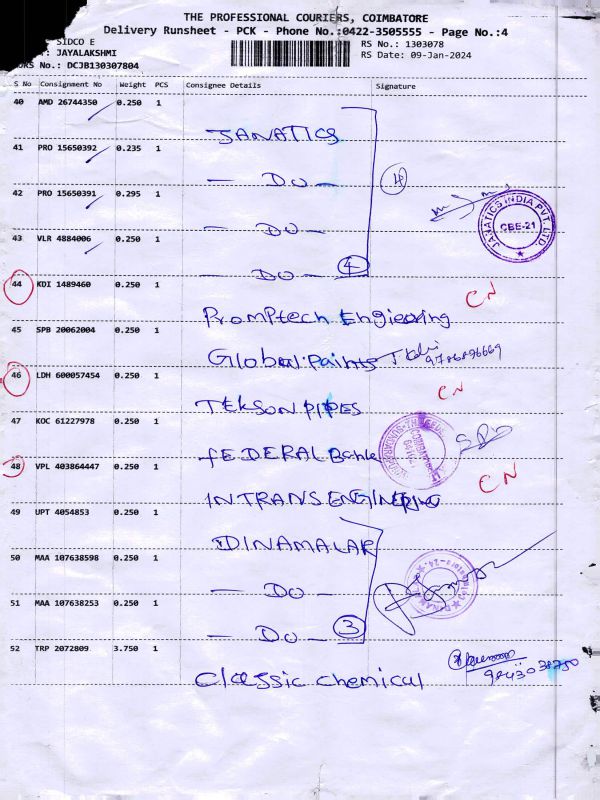 THE PROFESSIONAL COURIERS, COIMBATORE
Delivery Runsheet - PCK - Phone No.:0422-3505555 - Page No.:4
SIDCO E
: JAYALAKSHMI
RS No.: 1303078
RKS No.: DCJB130307804
RS Date: 09-Jan-2024
S No Consignment No Weight PCS Consignee Details Signature
40 AMD 26744350 0.250 1
JANATICS
41 PRO 15650392 0.235 1
- Do -
4
42 PRO 15650391 0.295 1
- Do -
JANATICS INDIA PVT. LTD. CBE-21
43 VLR 4884006 0.250 1
- Do - 4
44 KDI 1489460 0.250 1
CN
Promptech Engieering
45 SPB 20062004 0.250 1
Global Paints
9786896669
46 LDH 600057454 0.250 1
CN
TEKSON PIPES
47 KOC 61227978 0.250 1
FEDERAL Bank
48 VPL 403864447 0.250 1
CN
INTRANS ENGINERING
49 UPT 4054853 0.250 1
DINAMALAR
50 MAA 107638598 0.250 1
- Do -
51 MAA 107638253 0.250 1
- Do - 3
52 TRP 2072809 3.750 1
Classic chemical